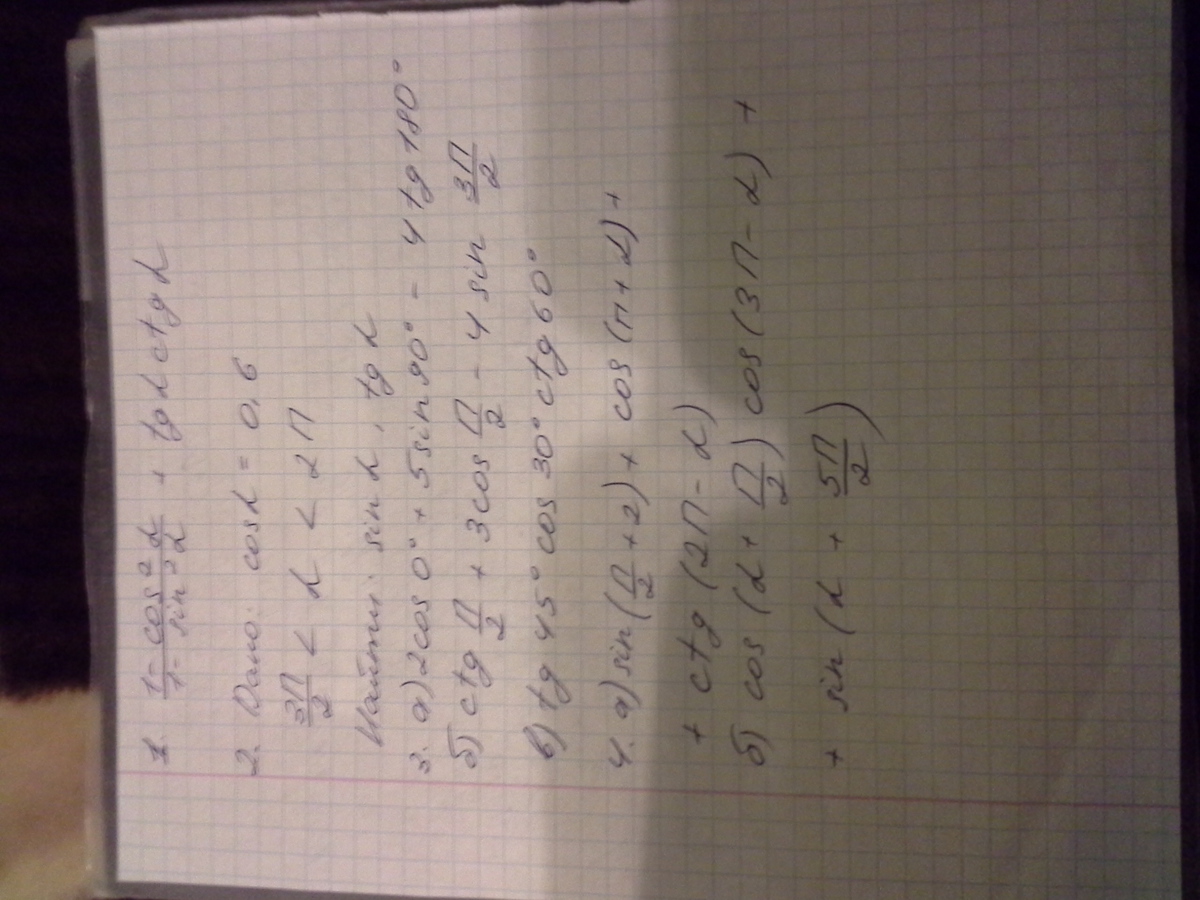 1. \frac{1-cos²α}{1-sin²α} + tgα ctgα
2. Дано: cosα = 0,6
\frac{3П}{2} < α < 2П
Найти: sinα, tgα
3. а) 2cos0° + 5sin90° - 4tg180°
б) ctg \frac{П}{2} + 3cos \frac{П}{2} - 4sin \frac{3П}{2}
в) tg45° cos30° ctg60°
4. а) sin(\frac{П}{2} + 2) + cos(п + α) +
+ ctg(2П - α)
б) cos(α + \frac{П}{2}) cos(3П - α) +
+ sin(α + \frac{5П}{2})